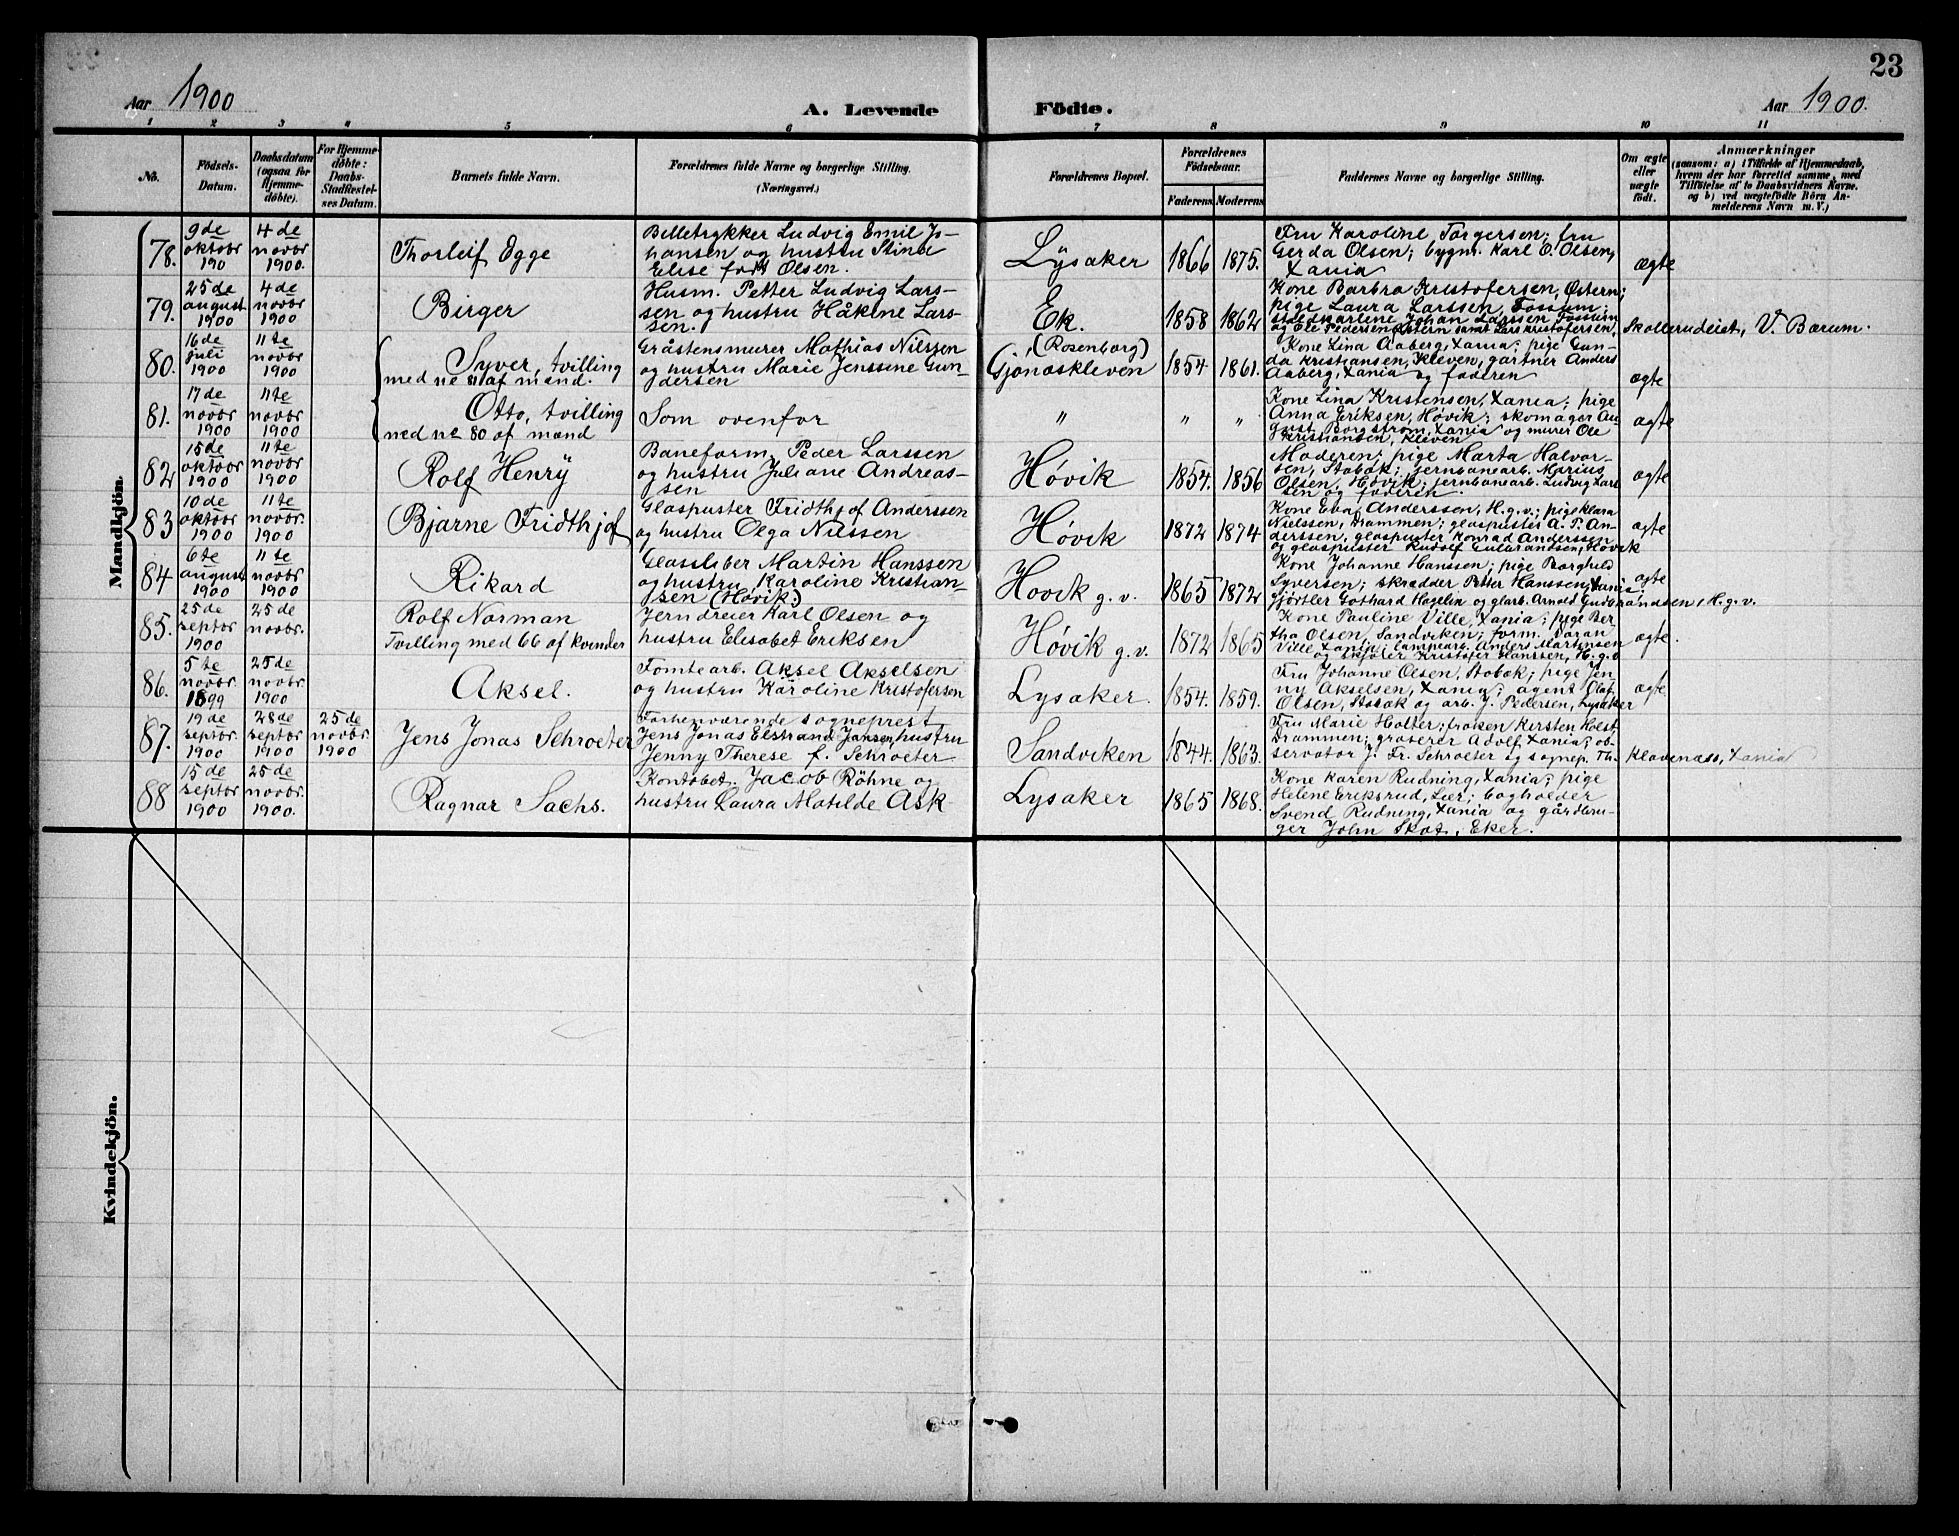 23
Aar 1900
A. Levende
Födte.
Aar 1900.
1 2 3 4 5 6 7 8 9 10 11
No.
Födsels-
Datum.
Daabsdatum
(ogsaa for
Hjemme-
döbte).
For Hjemme-
döbte:
Daabs-
Stadfæstel-
ses Datum.
Barnets fulde Navn.
Forældrenes fulde Navne og borgerlige Stilling.
(Næringsvei.)
Forældrenes Bopæl.
Forældrenes
Födselsaar.
Faderens Moderens
Faddernes Navne og borgerlige Stilling.
Om ægte
eller
uægte
födt.
Anmærkninger
(saasom: a) i Tilfælde af Hjemmedaab,
hvem der har forrettet samme, med
Tilföielse af to Daabsvidners Navne.
og b) ved uægtefödte Börn An-
melderens Navn m. V.)
Mandkjön.
78.
9de
oktobr
190
4de
novbr
1900.
Thorleif Egge
Billettrykker Ludvig Emil Jo-
hansen og hustru Stina
Elise født Olsen.
Lysaker
1866 1875.
Fru Karoline Torgersen; fru
Gerda Olsen; bygm. Karl O. Olsen,
Xania
ægte
79.
25de
august
1900
4de
novbr
1900
Birger
Husm. Petter Ludvig Lars-
sen og hustru Håkine Lars-
sen.
Ek.
1858 1862
Kone Barbra Kristofersen, Østern;
pige Laura Larssen, Fossum
Johan Larssen Fossum
og Ole Pedersen Østern samt Lars Kristofersen,
Skollerudeist, V. Bærum.
80.
16de
juli
1900
11te
novbr
1900
Syver, tvilling
med no 81 af mænd.
Gråstensmurer Mathias Nilssen
og hustru Marie Jenssine Gun-
dersen
(Rosenborg)
Gjønæskleven
1854 1861.
Kone Lina Aaberg, Xania; pige Gun-
da Kristiansen, Kleven, gartner Anders
Aaberg, Xania og faderen
ægte
81.
17de
novbr
1900
11te
novbr
1900
Otto, tvilling
med no 80 af mænd
Som ovenfor
" " "
Kone Lina Kristensen, Xania; pige
Anna Eriksen, Høvik; skomager Au-
gust Borgstrøm, Xania og murer Ole
Kristiansen, Kleven
ægte
82
15de
oktobr
1900
11te
novbr
1900
Rolf Henry
Baneform. Peder Larssen
og hustru Juliane Andreas-
sen
Høvik
1854. 1856
Moderen; pige Marta Halvor-
sen, Stabæk; jernbanearb. Marius
Olsen, Høvik; jernbanearb. Ludvig Lars-
sen og faderen.
ægte
83
10de
oktobr
1900
11te
novbr.
1900
Bjarne Fridthjof
Glaspuster Fridthjof Anderssen
og hustru Olga Nilssen
Høvik
1872 1874
Kone Eva Anderssen, H.g.v.; pige Klara
Nielssen, Drammen; glaspuster A. T. An-
derssen, glaspuster Konrad Anderssen
og glaspuster Rudolf Gulbrandsen, Høvik
ægte
84
6te
august
1900
11te
novbr
1900
Rikard
Glassliber Martin Hanssen
og hustru Karoline Kristian-
sen (Høvik.)
Høvik g.v.
1865 1872
Kone Johanne Hanssen; pige Borghild
Syversen; skrædder Petter Hanssen, Xania.
gjørtler Gothard Hagelin og glarb. Arnold Gudbrandsen, H.g.v.
ægte
85.
25de
septbr
1900
25de
novbr.
Rolf Norman
Tvilling med 66 af kvinder
Jerndreier Karl Olsen og
hustru Elisabet Eriksen
Høvik g.v.
1872 1865
Kone Pauline Ville, Xania; pige Ber-
tha Olsen, Sandviken; form. Johan
Ville Xania; lampearb. Anders Martinsen
og Kristofer Hanssen, H.g.v
ægte.
86.
5te
novbr.
1899
25de
novbr.
1900
Aksel.
Tomtearb. Aksel Akselsen
og hustru Karoline Kristofersen
Lysaker.
1854. 1859.
Fru Johanne Olsen, Stabæk; pige Jen-
ny Akselsen, Xania; agent Olaf
Olsen, Stabæk og arb. J. Pedersen, Lysaker
ægte
87.
19de
septbr.
1900
28de
septbr.
1900
25de
novbr.
1900
Jens Jonas Schroeter
Forhenværende sogneprest
Jens Jonas Elstrand Jansen, hustru
Jenny Therese f. Schroeter
Sandviken
1844. 1863.
Fru Marie Holter; frøken Kirsten Holst,
Drammen; groserer Adolf, Xania; ob-
servator J. Fr. Schroeter og sognep. Th.
Klaveness, Xania
88
15de
septbr
1900
25de
novbr.
1900.
Ragnar Sachs.
Kontobet. Jacob Røhne og
hustru Laura Matilde Ask
Lysaker
1865 1868.
Kone Karen Rudning, Xania; pige
Helene Eriksrud, Lier; bogholder
Svend Rudning, Xania og gårdbru-
ger John Skot, Eker.
Kvindekjön.